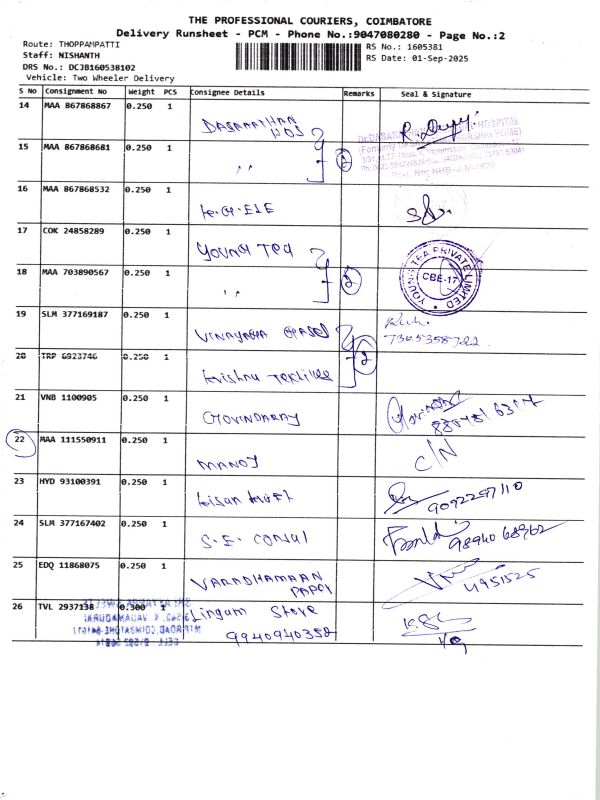 THE PROFESSIONAL COURIERS, COIMBATORE
Delivery Runsheet - PCM - Phone No.:9047080280 - Page No.:2
Route: THOPPAMPATTI
RS No.: 1605381
Staff: NISHANTH
RS Date: 01-Sep-2025
DRS No.: DCJB160538102
Vehicle: Two Wheeler Delivery
S No Consignment No Weight PCS Consignee Details Remarks Seal & Signature
14 MAA 867868867 0.250 1 DASARATHAN HOS
15 MAA 867868681 0.250 1 ,, 2
16 MAA 867868532 0.250 1 K.G.ELE
17 COK 24858289 0.250 1 YOUNG TEA
18 MAA 703890567 0.250 1 ,, 2 YOUNG TEA PRIVATE LIMITED CBE-17
19 SLM 377169187 0.250 1 VINAYAGA
7365358722
20 TRP 6923746 0.250 1 Krishna 2
21 VNB 1100905 0.250 1 GOVINDARAJ
22 MAA 111550911 0.250 1 MANOJ C/N
23 HYD 93100391 0.250 1 9092297110
24 SLM 377167402 0.250 1 S.E. CONSUL 98940 68962
25 EDQ 11868075 0.250 1 VARADHAMAAN 4951525
26 TVL 2937138 0.300 1 Lingam Store
9940940358